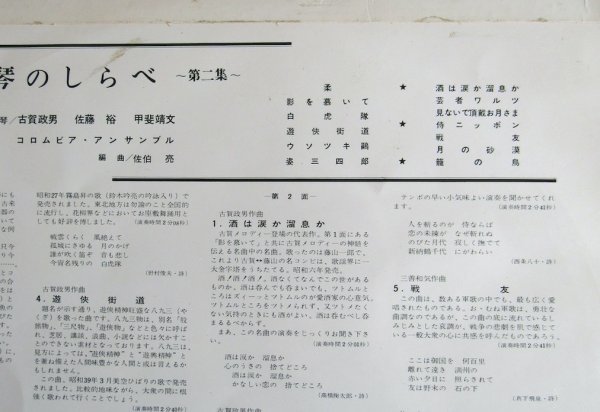 琴のしらべ ～第二集～
琴/古賀政男 佐藤 裕 甲斐靖文
コロムビア・アンサンブル
編曲/佐伯 亮
柔
影を慕いて
白虎隊
遊侠街道
ウソツキ鷗
姿三四郎
★ 酒は涙か溜息か
芸者ワルツ
見ないで頂戴お月さま
★ 侍ニッポン
戦友
月の砂漠
★ 籠の鳥
昭和27年霧島昇の歌(鈴木吟亮の吟詠入り)で
発売されました。東北地方は勿論のこと全国的
に流行し、花柳界などにおいてお座敷舞踊用と
しても好評を博しました。
戦雲くらく 風絶えて
孤城にさゆる 月のかげ
誰が吹く笛ぞ 音も悲し
今宵名残りの 白虎隊
(野村俊夫・詩)
古賀政男作曲
4. 遊侠街道
題名が示す通り、遊侠精神旺盛な八九三(や
くざ)を歌った曲です。八九三物は、別名「股
旅物」、「三尺物」、「道中物」などと色々に呼ば
れ、映画、講談、浪曲、小説などには欠かすこ
とのできない素材となっております。八九三は
見方によっては、"遊侠精神"と"義侠精神"と
を兼ね備えた人間味豊かな人間とは言えるかも
しれません。
この曲、昭和39年3月美空ひばりの歌で発売
されました。比較的地味ながら、大衆の間に根
強く歌われて行くことでしょう。
—第2面—
古賀政男作曲
1. 酒は涙か溜息か
古賀メロディー登場の代表作。第1面にある
『影を慕いて』と共に古賀メロディーの神髄を
伝える名曲中の名曲。歌ったのは藤山一郎で、
これより古賀↔藤山の名コンビは、歌謡界に一
大金字塔をうちたてる。昭和六年発売。
酒がいけないの、酒なくてなんでこの世がある
ものか、酒は呑んでも呑まいでも、ツトルムと
ころはズィーーとツトルムのが愛酒家の心意気。
ツトルムところをツトメられず、又ツトメたく
ない気持のときにも酒がよい。酒は呑むべし呑
まるるべからず。
まあ、この名曲の演奏をじっくりお聞き下さ
い。
酒は涙か 溜息か
心のうさの 捨てどころ
酒は涙か 溜息か
かなしい恋の 捨てどころ
(高橋掬太郎・詩)
テンポの早い小気味よい演奏を聞かせてくれま
す。
人を斬るのが 侍ならば
恋の未練が なぜ斬れぬ
のびた月代 寂しく撫でて
新納鶴千代に にがわらい
(西条八十・詩)
三善和気作曲
5. 戦友
この曲は、数ある軍歌の中でも、最も広く愛
唱されたものである。お・むね軍歌は、勇壮な
曲調なのであるが、この曲の底に流れているもし
みじみとした哀調が、戦争の悲劇を肌で感じて
いる一般大衆の心に共感を呼んだものであろう。
ここは御国を 何百里
離れて遠き 満洲の
赤い夕日に 照らされて
友は野末の 石の下
(真下飛泉・詩)